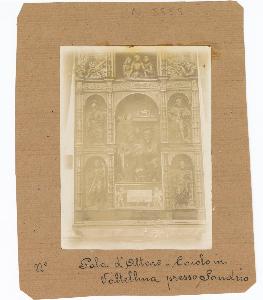 N. 5553
Nº Pala d'Altare - Caiolo in
Valtellina presso Sondrio